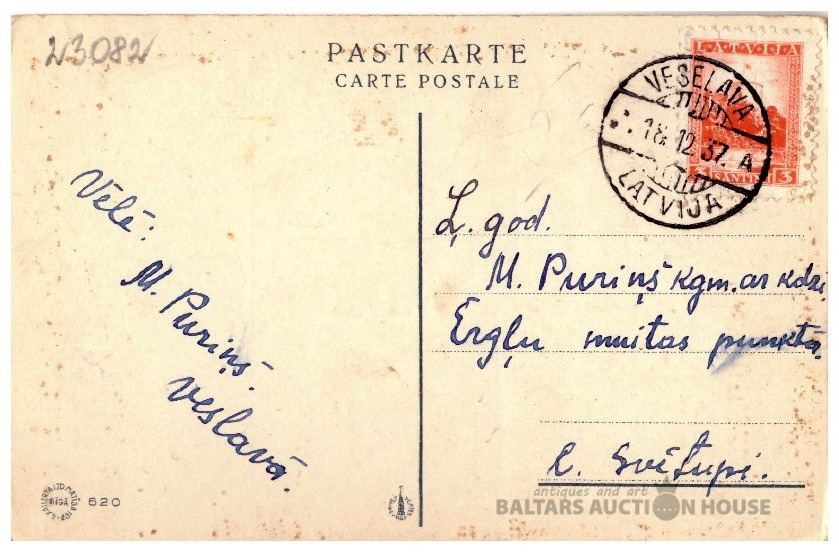 23082
PASTKARTE
CARTE POSTALE
LATVIJA
3 SANTIMI 3
VESELAVA
18.12.37. A
LATVIJA
Vēlē:
M. Puriņš.
Veslavā.
Ļ. god.
M. Puriņš kgm. ar kdzi.
Ērgļu muitas punktā.
c. Svētupi.
RĪGĀ
620
antiques and art
BALTARS AUCTION HOUSE